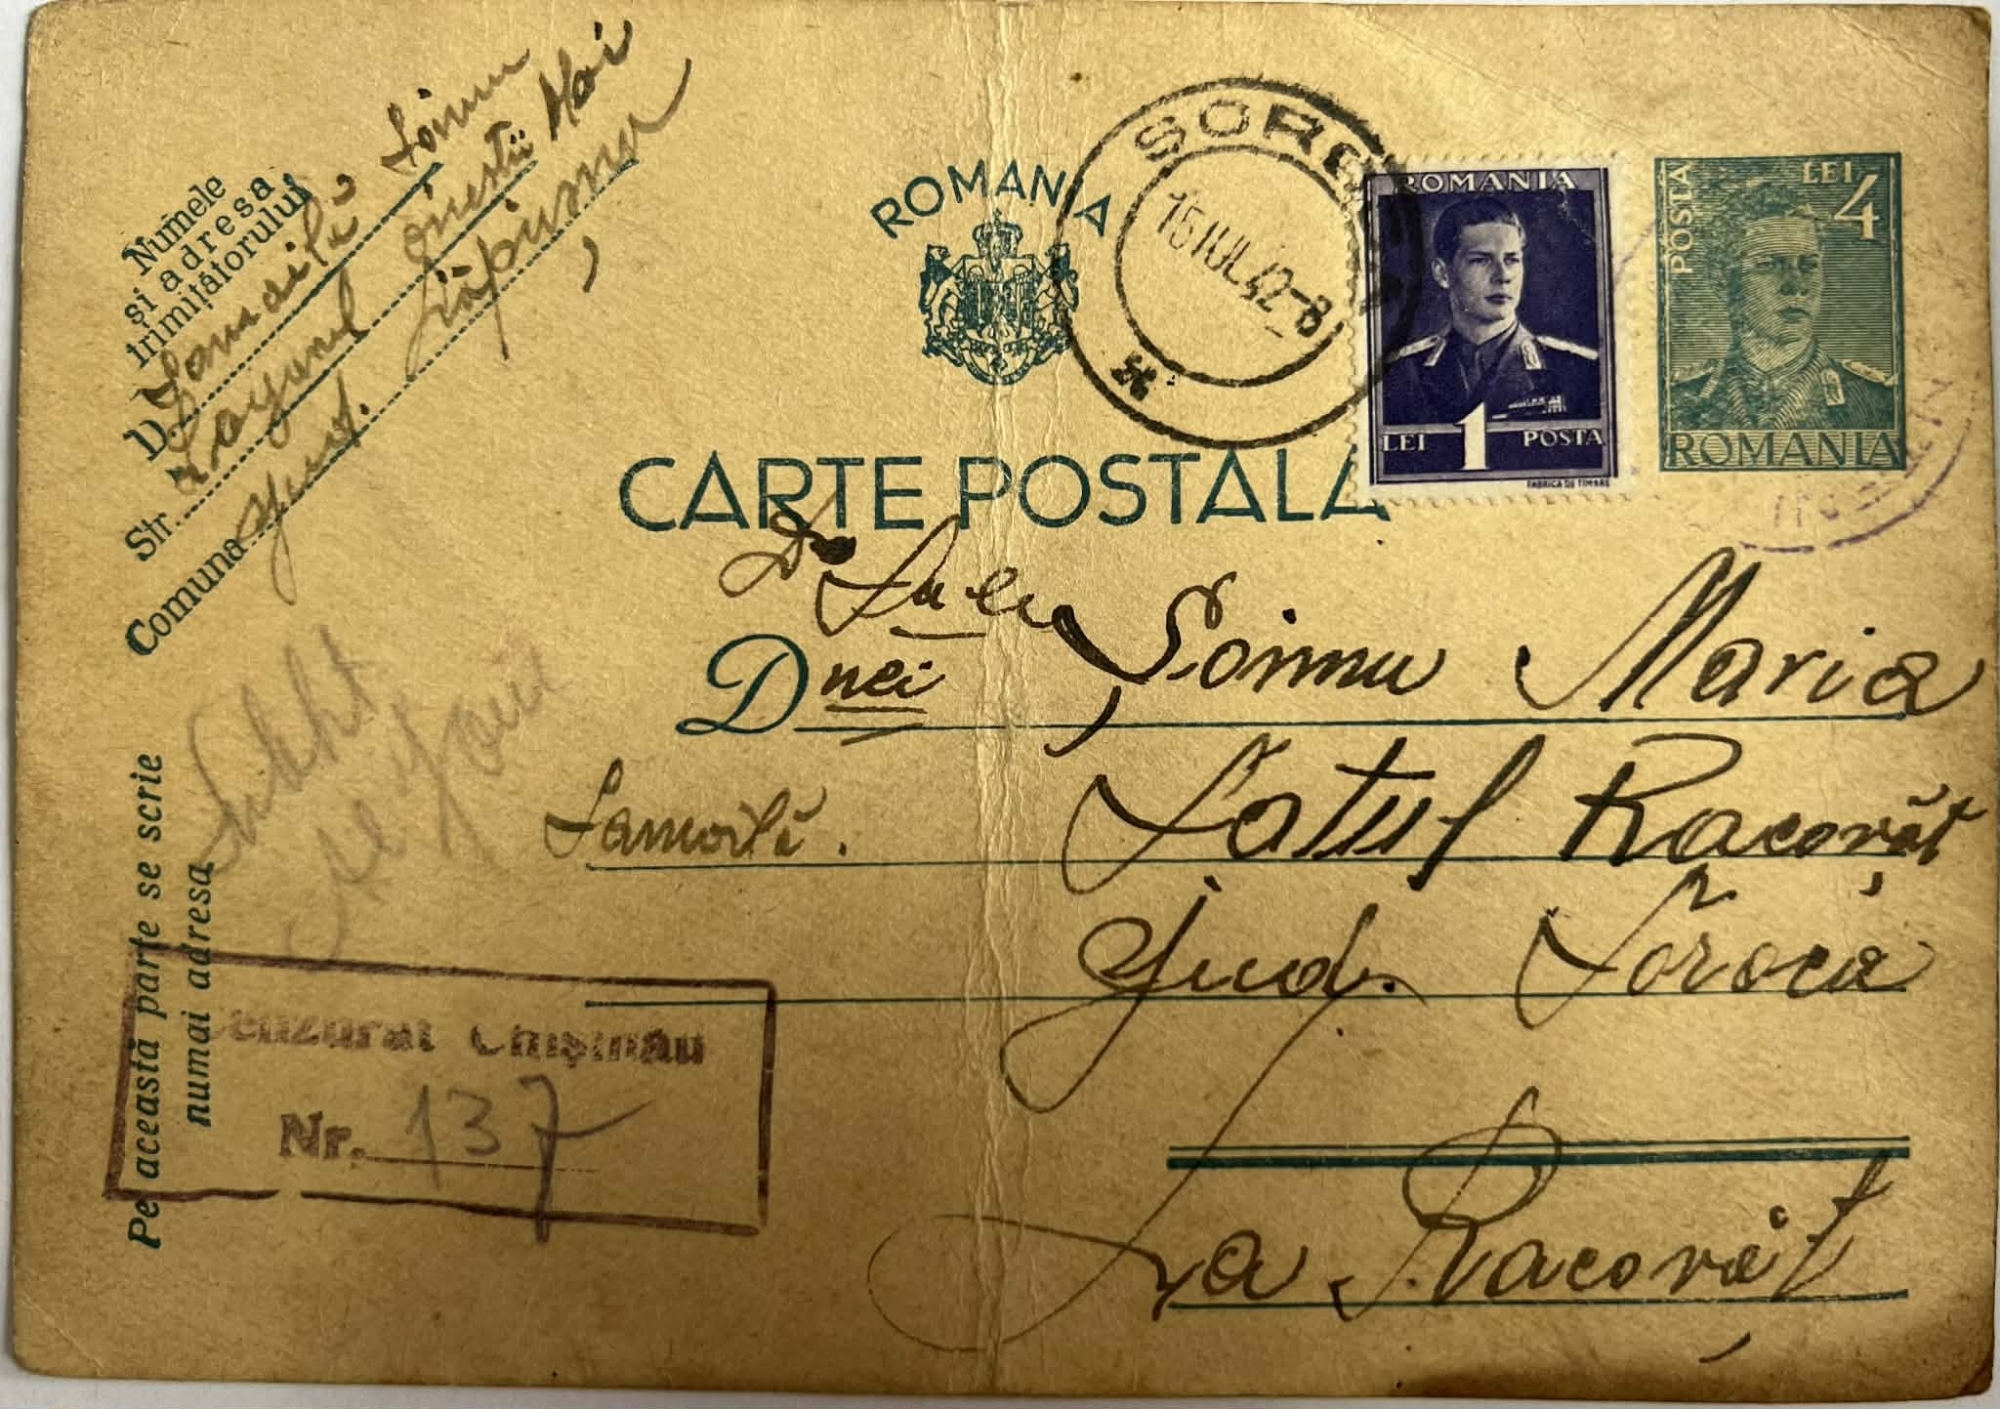 Numele
și adresa
trimițătorului
D. Samoilă Soimu
Str. onestii Noi
Comuna Jud. Lăpușna
ROMANIA
SOROCA
15 IUL. 42 - 8
ROMANIA
LEI 1 POSTA
FABRICA DE TIMBRE
POSTA LEI 4
ROMANIA
CARTE POSTALA
Dnei Soimu Maria
Samoilă. Satul Racovăt
Jud. Soroca
La Racovăt
Pe această parte se scrie
numai adresa
Cenzurat Chișinău
Nr. 137